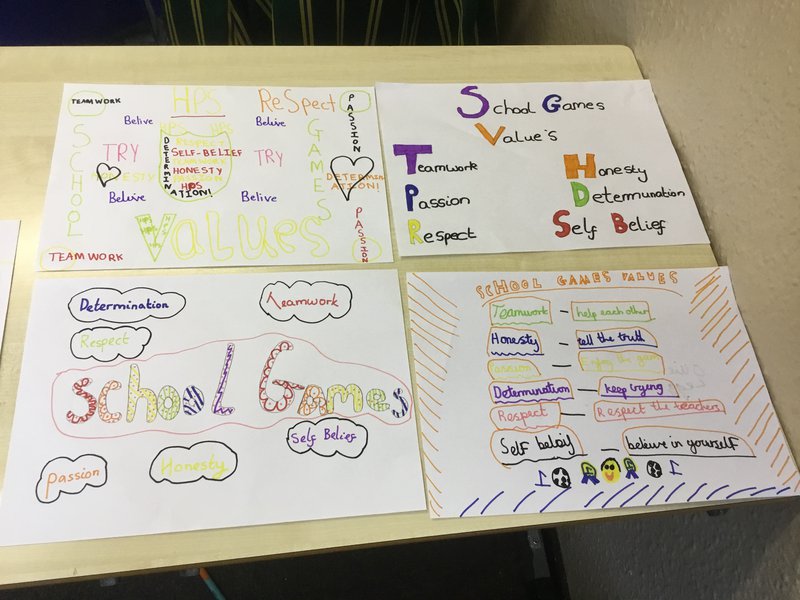 TEAMWORK
HPS
ReSpect
PASSION
Belive
Belive
SCHOOL
GAMES
TRY
TRY
HONESTY
DETERMINATION!
RESPECT
SELF-BELIEF
TEAMWORK
HONESTY
PASSION
HPS
DETERMINATION!
Belive
Belive
Values
TEAMWORK
PASSION
School Games
Value's
Teamwork
Honesty
Passion
Determunation
Respect
Self Belief
Determination
Teamwork
Respect
School Games
Self Belief
Passion
Honesty
SCHOOL GAMES VALUES
Teamwork – help each other
Honesty – tell the truth
Passion – Enjoy the game
Determination – keep trying
Respect – Respect the teachers
Self belay – believe in yourself